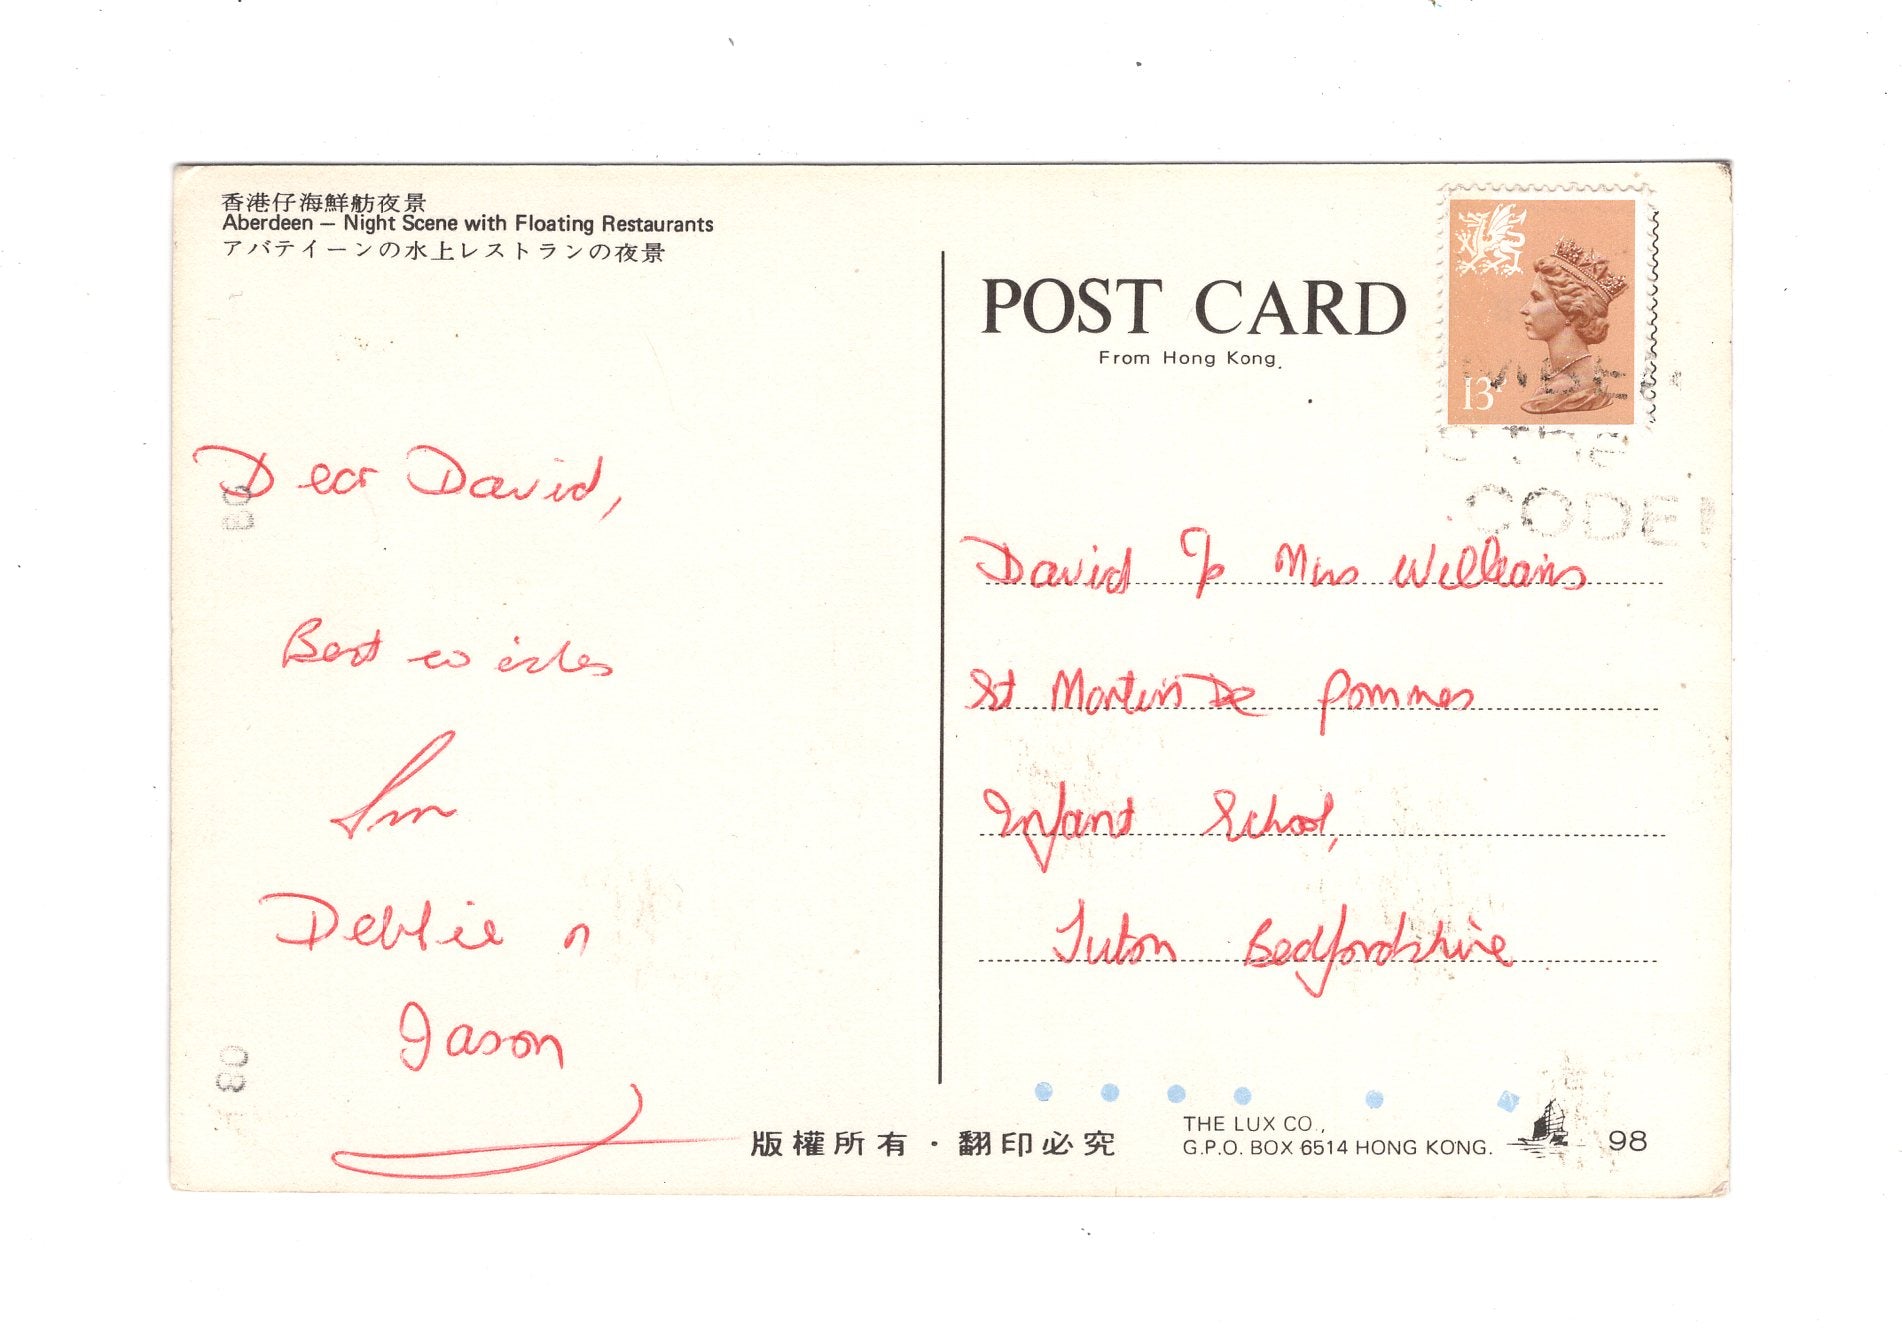 香港仔海鮮舫夜景
Aberdeen – Night Scene with Floating Restaurants
アバテイーンの水上レストランの夜景
POST CARD
From Hong Kong.
13P
the
CODE!
Dear David,
Best wishes
Debbie n
Jason
David % Mrs Williams
St Martin De Pommes
Infant School,
Luton Bedfordshire
版權所有・翻印必究
THE LUX CO.,
G.P.O. BOX 6514 HONG KONG.
98